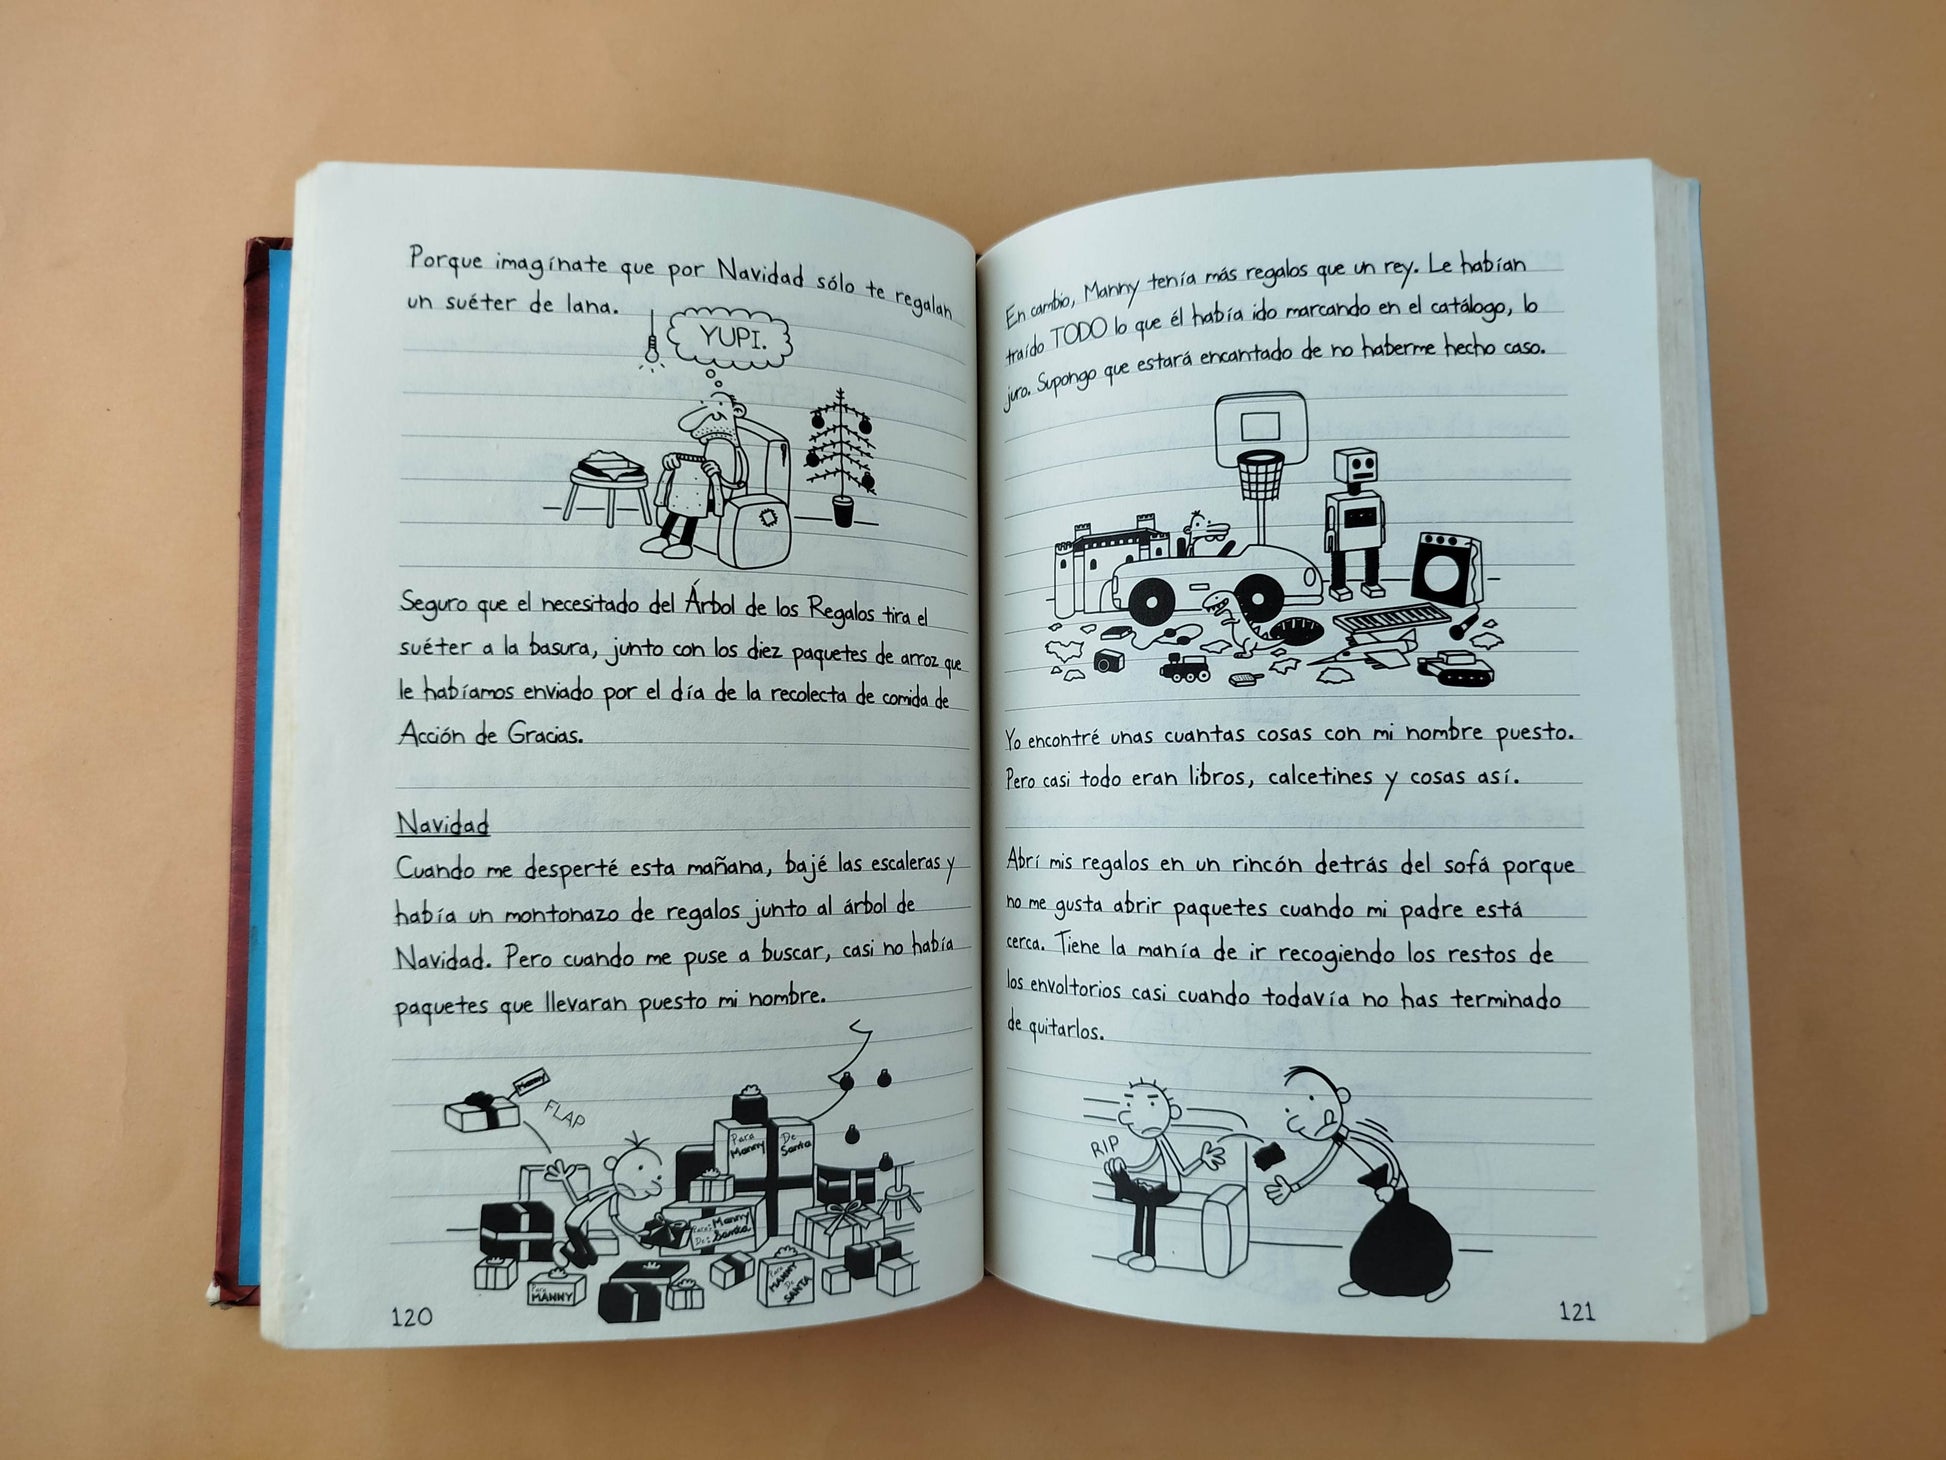 Porque imagínate que por Navidad sólo te regalan
un suéter de lana.
YUPI.
Seguro que el necesitado del Árbol de los Regalos tira el
suéter a la basura, junto con los diez paquetes de arroz que
le habíamos enviado por el día de la recolecta de comida de
Acción de Gracias.
Navidad
Cuando me desperté esta mañana, bajé las escaleras y
había un montonazo de regalos junto al árbol de
Navidad. Pero cuando me puse a buscar, casi no había
paquetes que llevaran puesto mi nombre.
Manny
FLAP
Para
Manny
De
Santa
Para: Manny
De: Santa
Para
MANNY
Para
MANNY
De
SANTA
120
En cambio, Manny tenía más regalos que un rey. Le habían
traído TODO lo que él había ido marcando en el catálogo, lo
juro. Supongo que estará encantado de no haberme hecho caso.
Yo encontré unas cuantas cosas con mi nombre puesto.
Pero casi todo eran libros, calcetines y cosas así.
Abrí mis regalos en un rincón detrás del sofá porque
no me gusta abrir paquetes cuando mi padre está
cerca. Tiene la manía de ir recogiendo los restos de
los envoltorios casi cuando todavía no has terminado
de quitarlos.
RIP
121